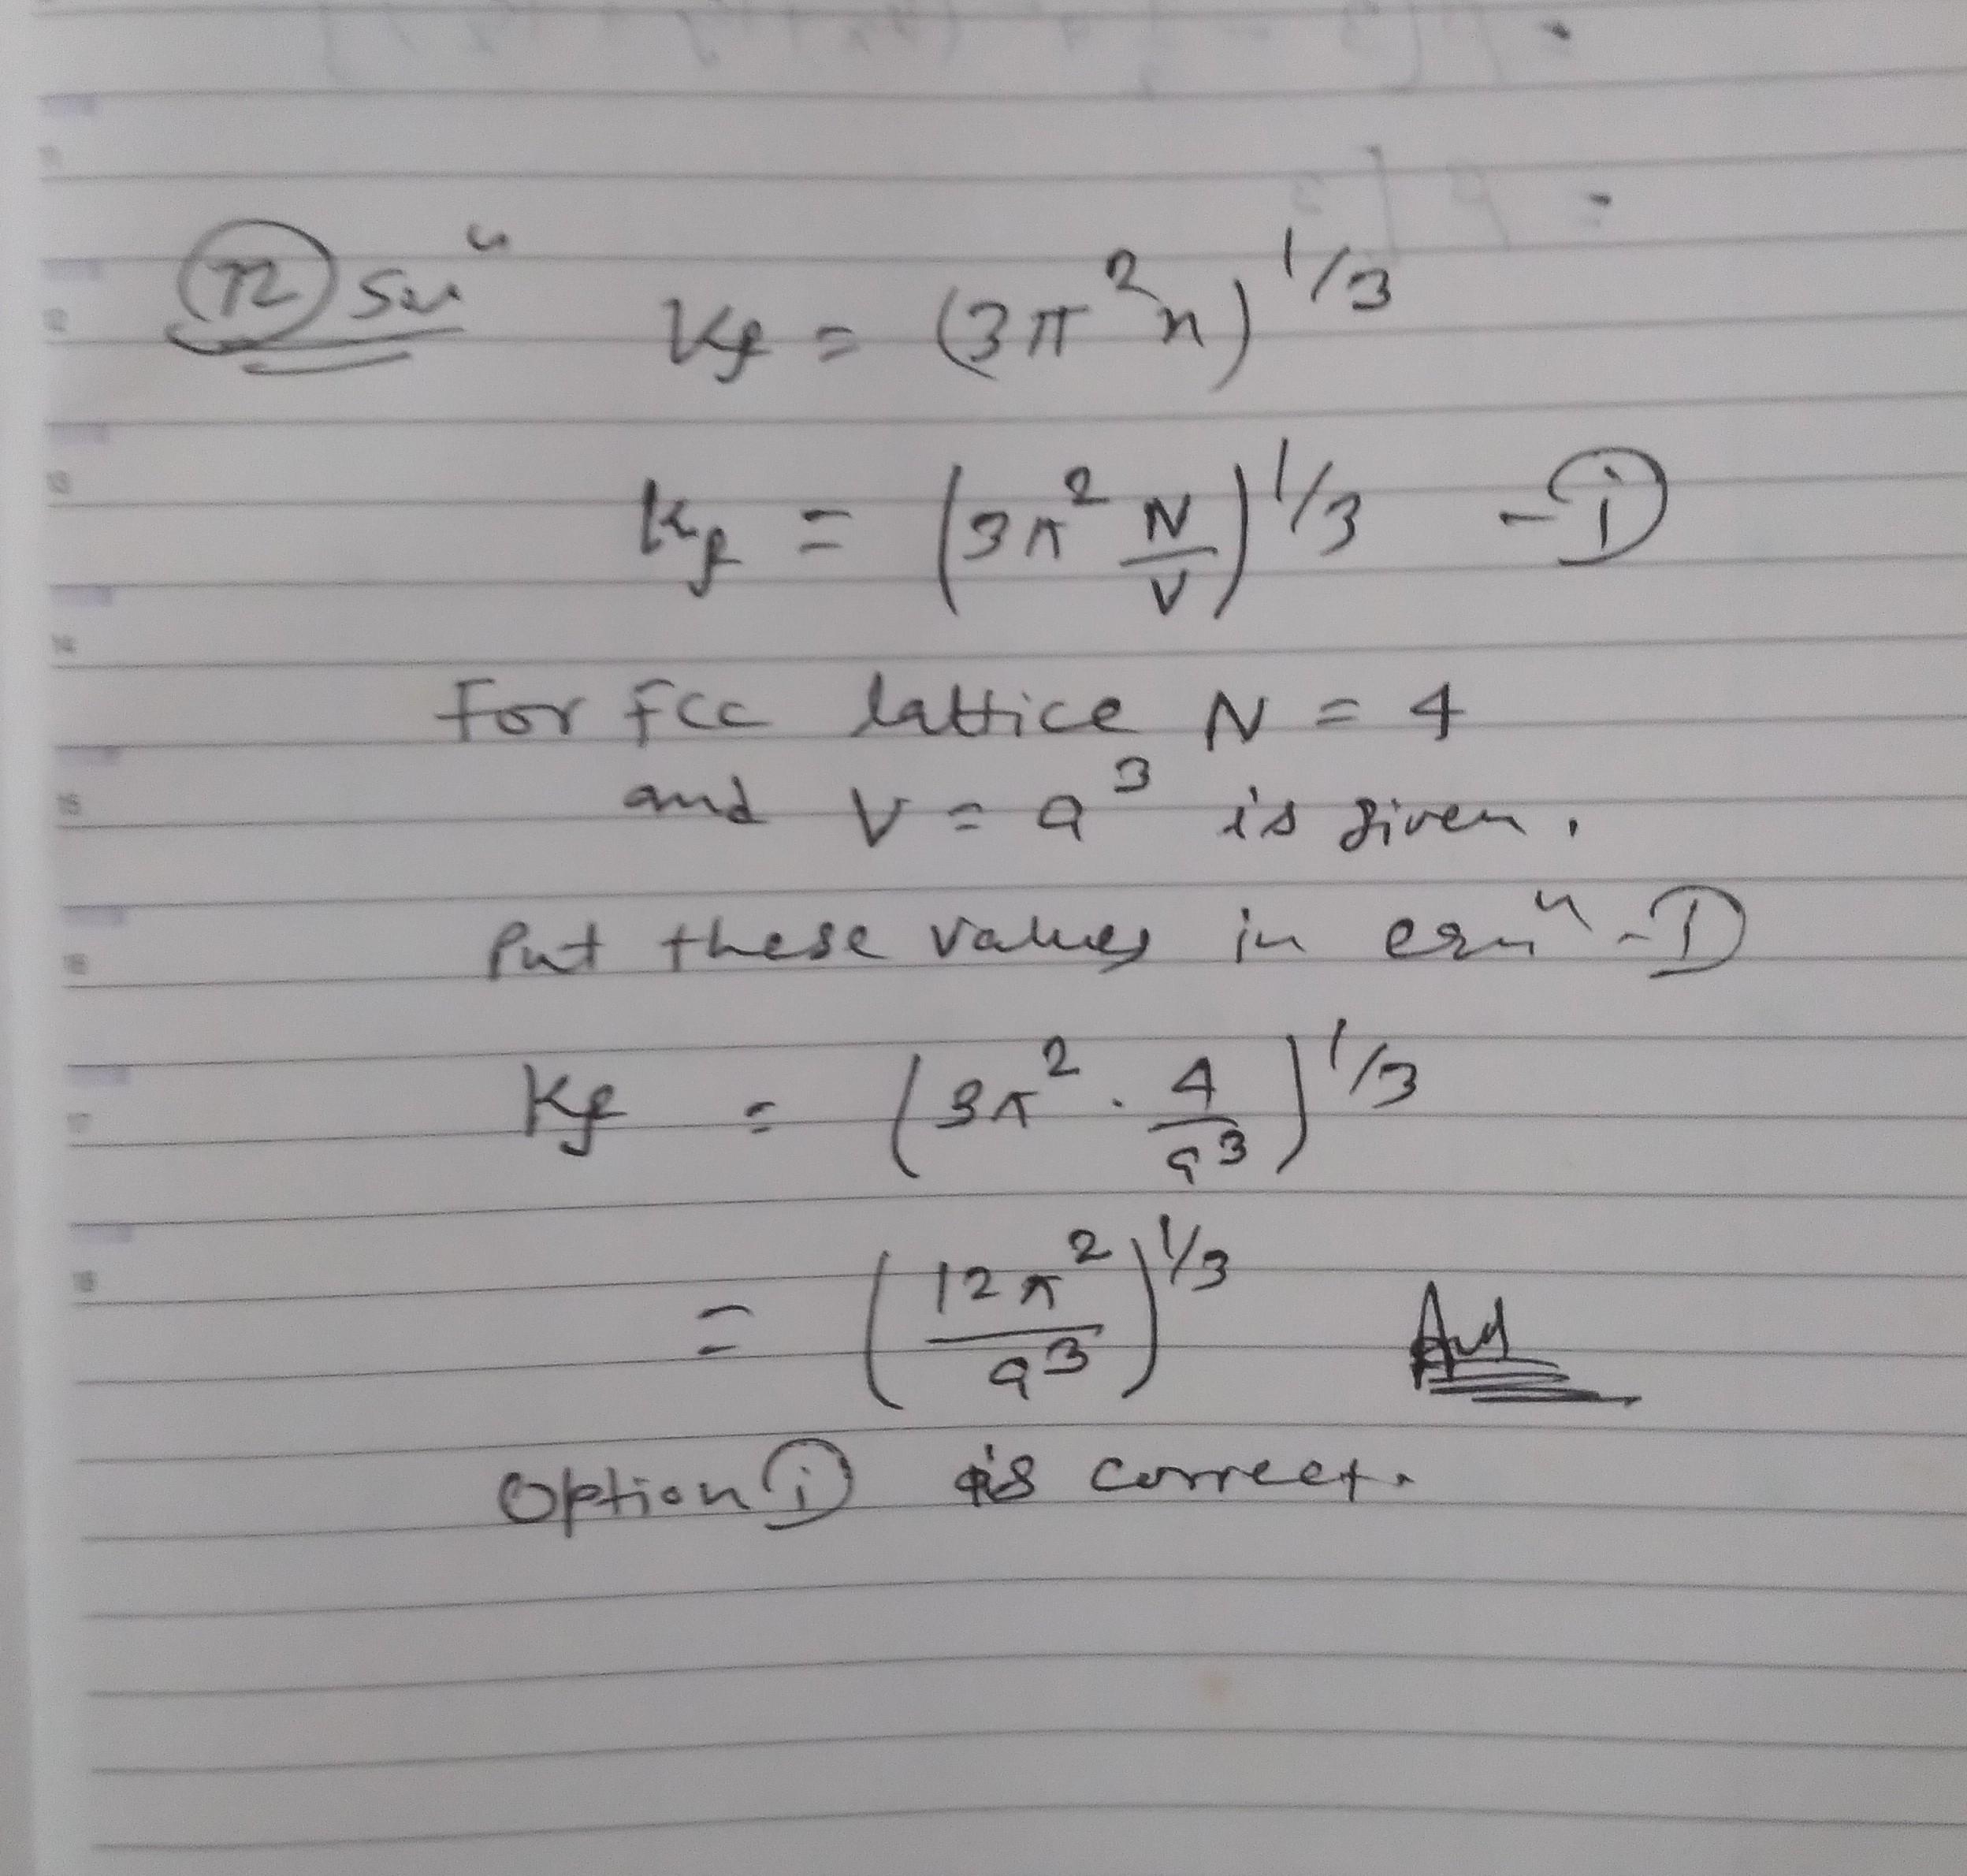 72 Solⁿ Kf = (3π²n)^1/3
Kf = (3π² N/V)^1/3 - i
For fcc lattice N = 4
and V = a³ is given.
Put these values in eqnⁿ - I
Kf = (3π² . 4/a³)^1/3
= (12π²/a³)^1/3 Ans
Option i is correct.